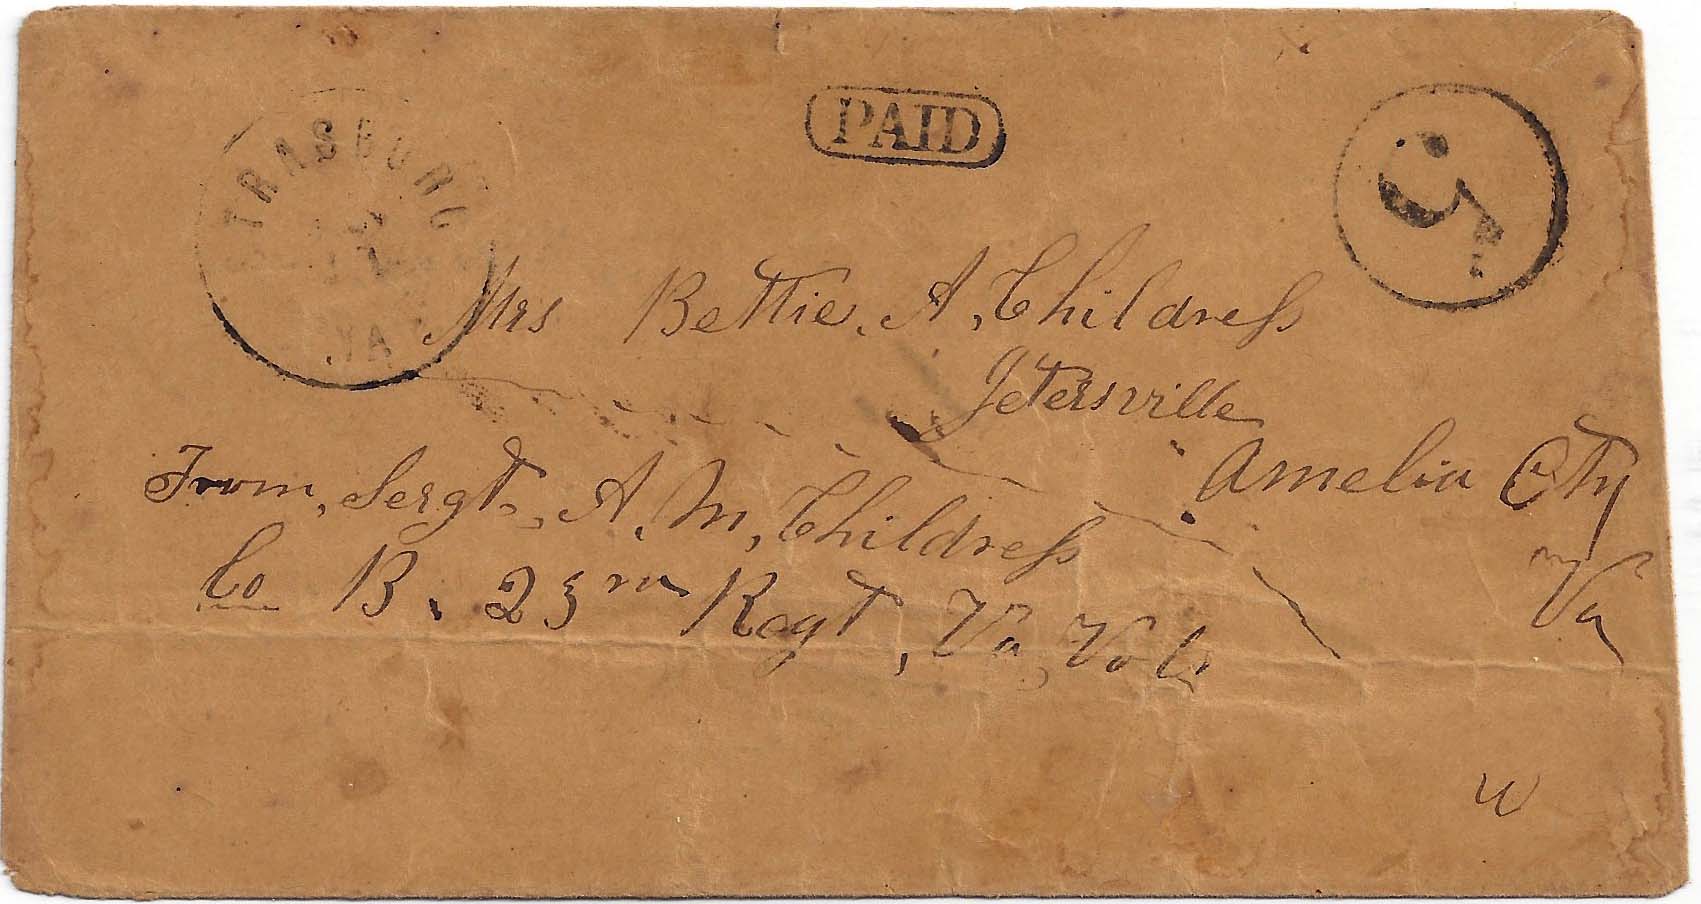 TRASBURG
VA
PAID
5
Mrs Bettie, A, Childress
Jetersville
Amelia Cty
Va
From, Sergt, A. M, Childress
Co B. 23rd Regt, Va, Vols
W